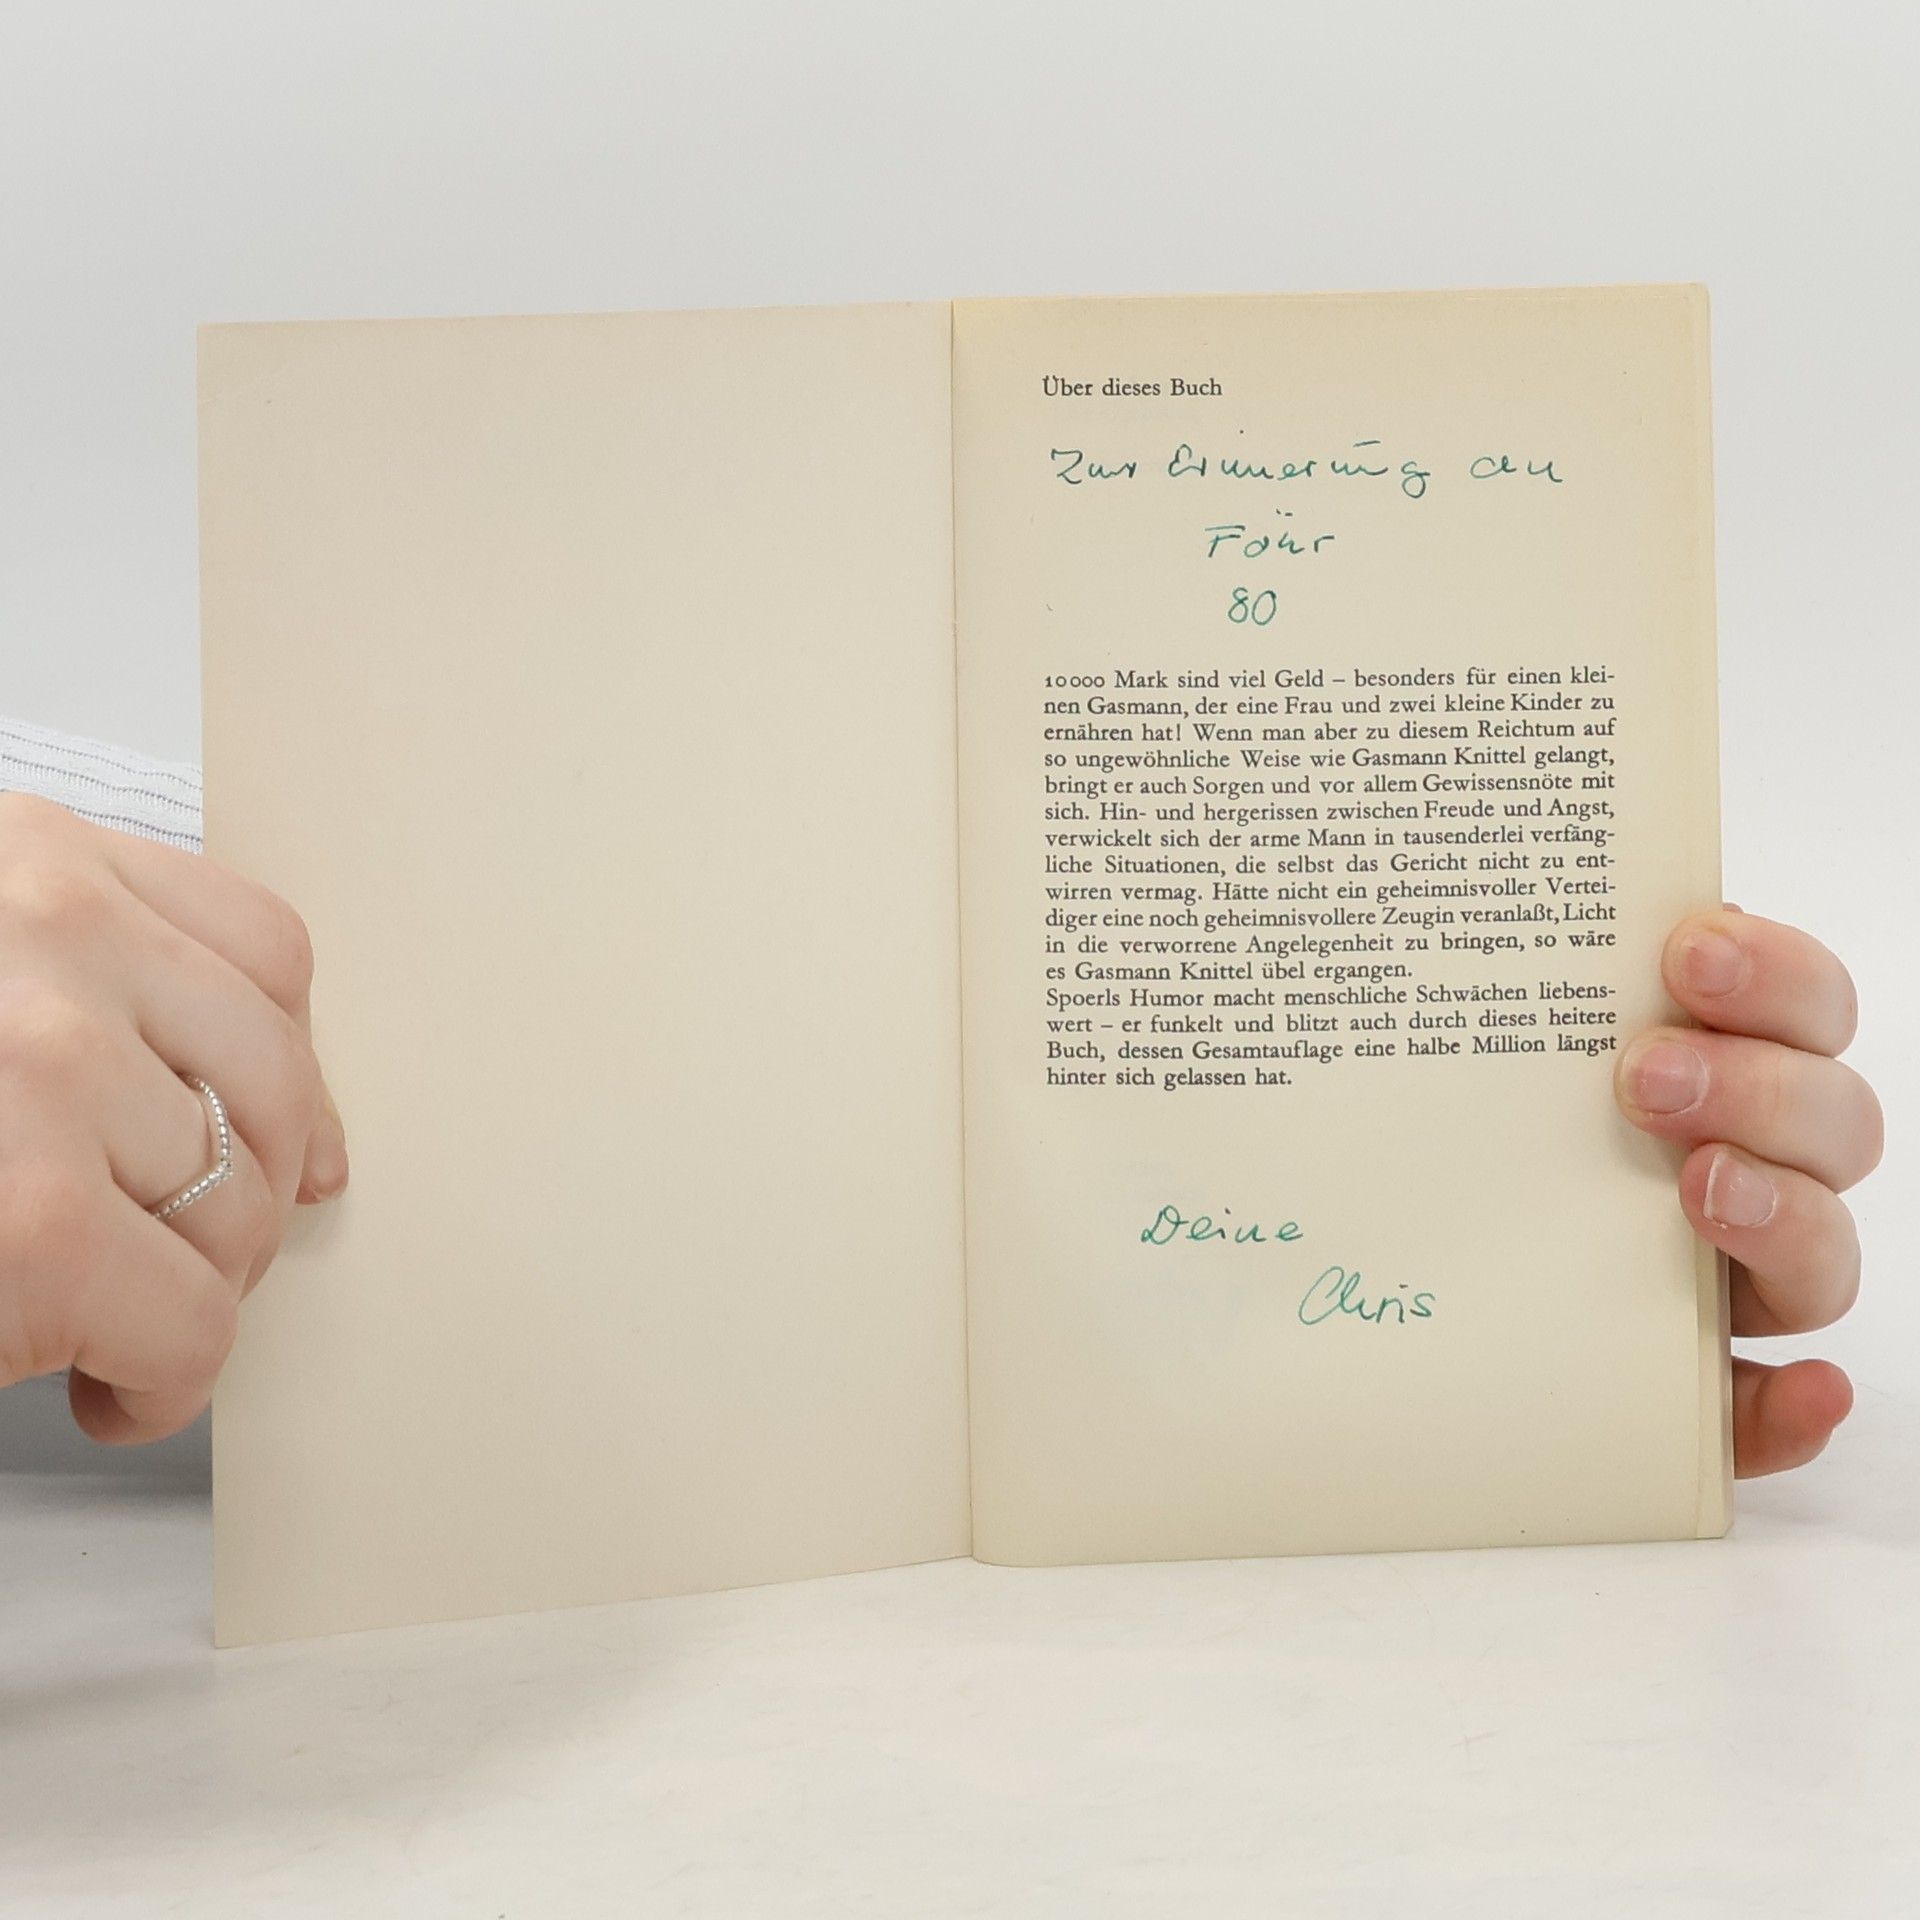 Über dieses Buch
Zur Erinnerung an
Föhr
80
10000 Mark sind viel Geld – besonders für einen klei-
nen Gasmann, der eine Frau und zwei kleine Kinder zu
ernähren hat! Wenn man aber zu diesem Reichtum auf
so ungewöhnliche Weise wie Gasmann Knittel gelangt,
bringt er auch Sorgen und vor allem Gewissensnöte mit
sich. Hin- und hergerissen zwischen Freude und Angst,
verwickelt sich der arme Mann in tausenderlei verfäng-
liche Situationen, die selbst das Gericht nicht zu ent-
wirren vermag. Hätte nicht ein geheimnisvoller Vertei-
diger eine noch geheimnisvollere Zeugin veranlaßt, Licht
in die verworrene Angelegenheit zu bringen, so wäre
es Gasmann Knittel übel ergangen.
Spoerls Humor macht menschliche Schwächen liebens-
wert – er funkelt und blitzt auch durch dieses heitere
Buch, dessen Gesamtauflage eine halbe Million längst
hinter sich gelassen hat.
Deine
Chris